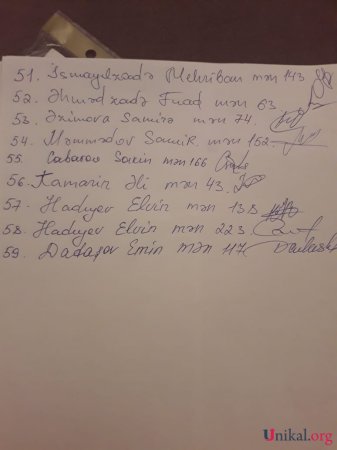 51. İsmayılzadə Mehriban mən 143.
52. Əhmədzadə Fuad mən 63
53. Əzimova Samirə mən 74.
54. Məmmədov Samir. mən 152.
55. Cabarov Sakin mən 166
56. Kamarin Əli mən 43.
57. Hadıyev Elvin mən 138
58. Hadıyev Elvin mən 223.
59. Dadaşov Emin mən 117.
Unikal.org